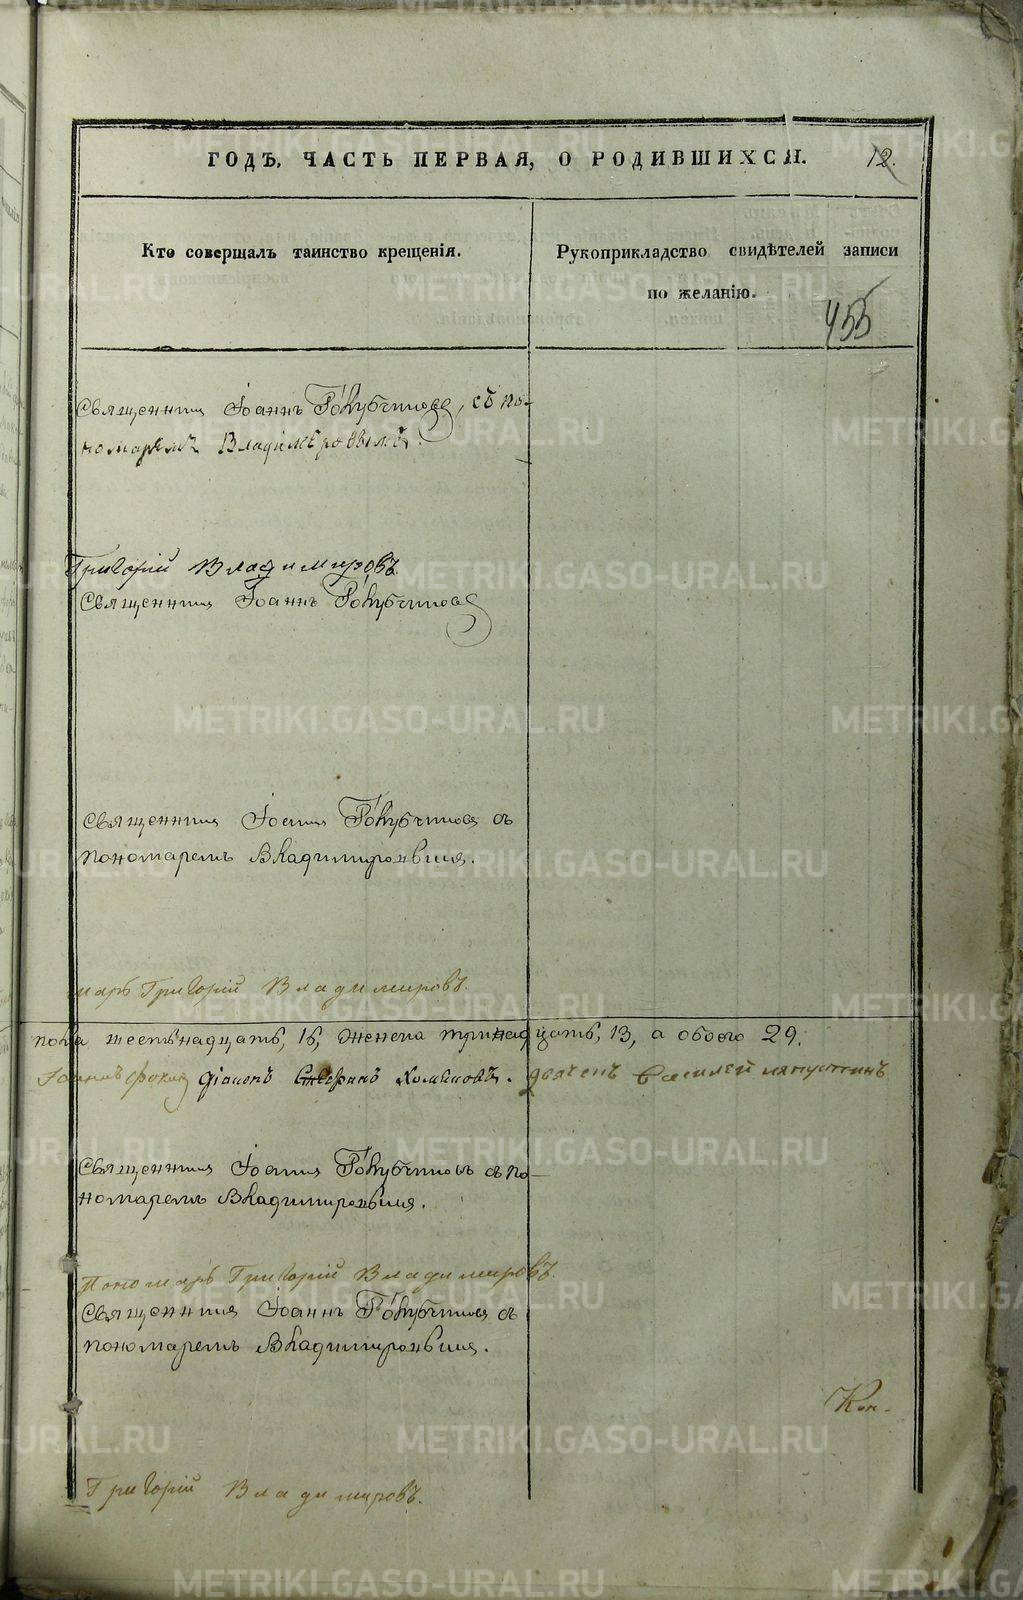 ГОДЪ, ЧАСТЬ ПЕРВАЯ, О РОДИВШИХСЯ. 12.
Кто совершалъ таинство крещенія.
Рукоприкладство свидѣтелей записи
по желанію.
455
Священникъ Іоаннъ съ по-
номаремъ Владиміровымъ.
Григорій Владимировъ.
Священникъ Іоаннъ
Священникъ Іоаннъ съ
пономаремъ Владимировымъ.
марь Григорій Владимировъ.
пола шестьнадцать, 16, женска тринадцать, 13, а обоего 29.
Іоаннъ діаконъ дьячекъ Василей
Священникъ Іоаннъ съ по-
номаремъ Владимировымъ.
Пономарь Григорій Владимировъ.
Священникъ Іоаннъ съ
пономаремъ Владимировымъ.
Кон-
Григорій Владимировъ.
METRIKI.GASO-URAL.RU